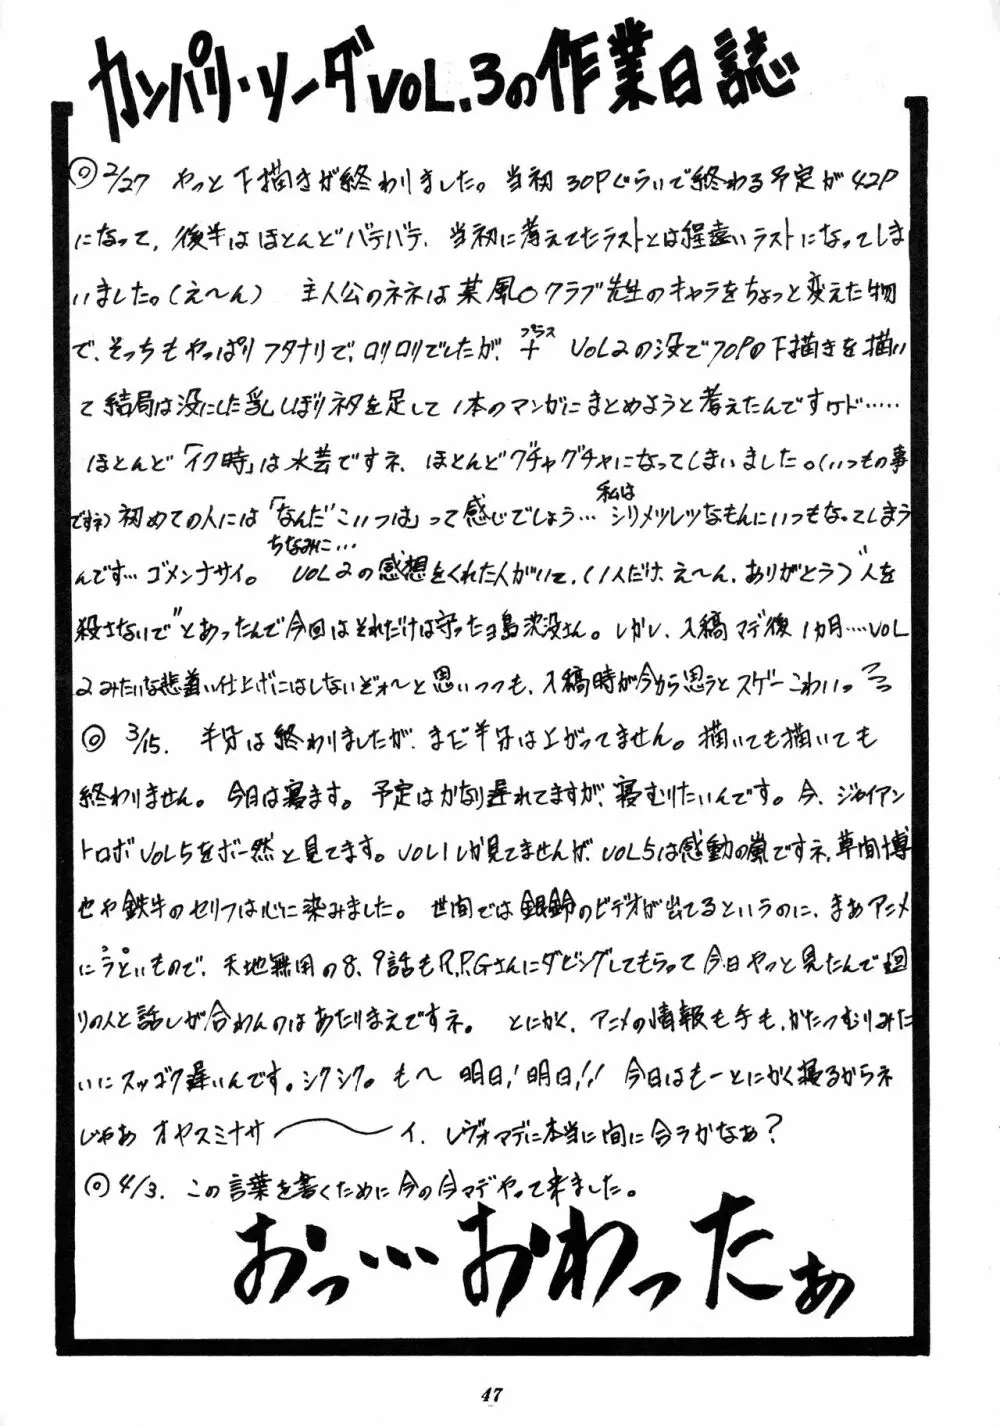 カンパリ・ソーダVOL.3の作業日誌
◎2/27 やっと下描きが終わりました。当初30Pぐらいで終わる予定が42P
になって、後半はほとんどバテバテ、当初に考えてたラストとは程遠いラストになってしま
いました。(え〜ん) 主人公のネネは某風○クラブ先生のキャラをちょっと変えた物
で、そっちもやっぱりフタナリで、ロリロリでしたが、
プラス
+ VOL2の没で70Pの下描きを描い
て結局は没にした乳しぼりネタを足して1本のマンガにまとめようと考えたんですケド……
ほとんど「イク時」は水芸ですネ、ほとんどグチャグチャになってしまいました。(いつもの事
ですネ)初めての人には「なんだこいつは」って感じでしょう…
私は
シリメツレツなもんにいつもなってしまう
んです…ゴメンナサイ。
ちなみに…
VOL2の感想をくれた人がいて、(1人だけ、え〜ん、ありがとう)"人を
殺さないで"とあったんで今回はそれだけは守ったヨ島沈没さん。しかし、入稿マデ後1カ月……VOL
2みたいな悲着い仕上げにはしないぞォ〜と思いつつも、入稿時が今から思うとスゲーこわいっ
◎ 3/15. 半分は終わりましたが、まだ半分は上がってません。描いても描いても
終わりません。今日は寝ます。予定はかなり遅れてますが、寝むりたいんです。今、ジャイアン
トロボVOL5をボー然と見てます。VOL1しか見てませんが、VOL5は感動の嵐ですネ、草間博
也や鉄牛のセリフは心に染みました。世間では銀鈴のビデオが出てるというのに、まぁアニメ
にうといもので、天地無用の8、9話もR.P.Gさんにダビングしてもらって今日やっと見たんで廻
りの人と話しが合わんのはあたりまえですネ。とにかく、アニメの情報も手も、かたつむりみた
いにスッゴク遅いんです。シクシク。も〜明日!明日!! 今日はもーとにかく寝るからネ
じゃあ オヤスミナサ〜〜イ、レヴォマデに本当に間に合うかなぁ?
◎4/3. この言葉を書くために今の今マデやって来ました。
おっ…おわったぁ
47